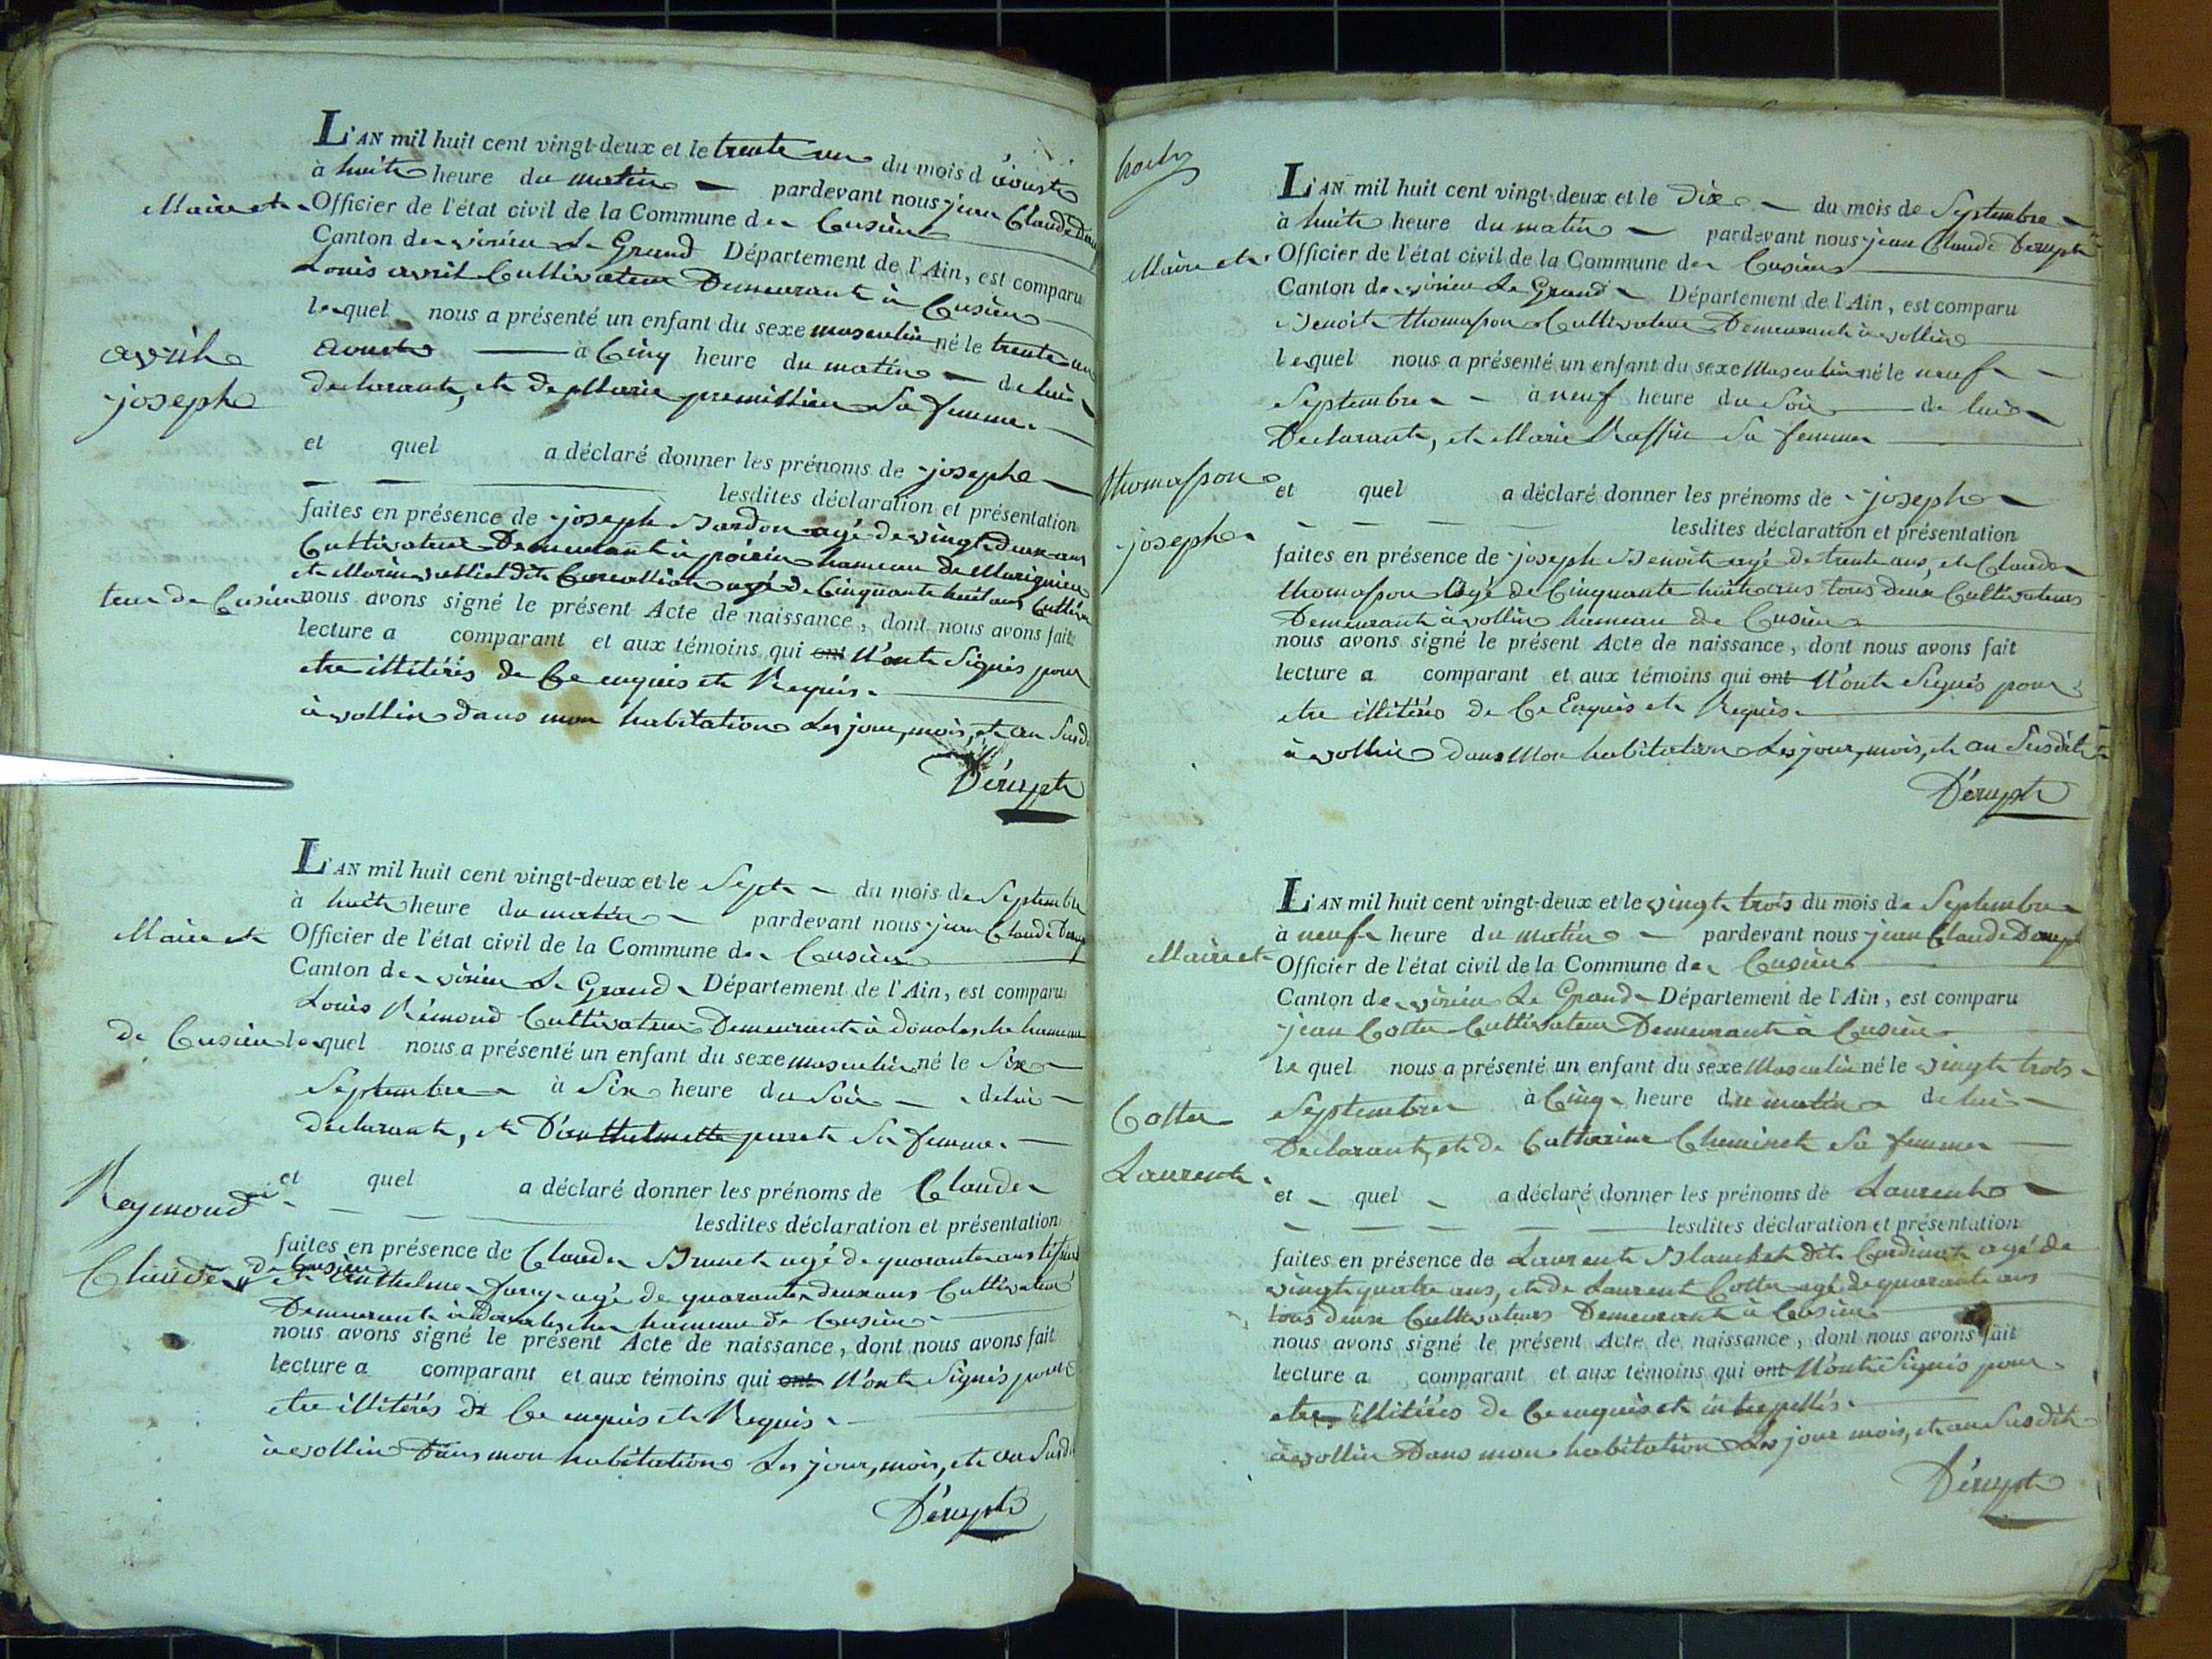 L'AN mil huit cent vingt-deux et le trente un du mois d'aoust
à huit heure du matin pardevant nous jean Claude
Maire et Officier de l'état civil de la Commune de Cusieu
Canton de virieu Le Grand Département de l'Ain, est comparu
Louis avril Cultivateur Demeurant à Cusieu
lequel nous a présenté un enfant du sexe masculin né le trente un
aoust à Cinq heure du matin de lui
declarant, et de Marie premillieu Sa femme
avril
joseph
et quel a déclaré donner les prénoms de joseph
lesdites déclaration et présentation
faites en présence de joseph agé de vingt deux ans
Cultivateur Demeurant à poirin hameau de Marignieu
et dit agé de Cinquante huit ans Cultiva
teur de Cusieu nous avons signé le présent Acte de naissance, dont nous avons fait
lecture a comparant et aux témoins qui ont N'ont Signés pour
etre illitérés de Ce enquis et Requis
à vollin dans mon habitation Les jour, mois, et an Susd
Dérupt
L'AN mil huit cent vingt-deux et le Sept du mois de Septembre
à huit heure du matin pardevant nous jean Claude Derup
Maire et Officier de l'état civil de la Commune de Cusieu
Canton de virieu Le Grand Département de l'Ain, est comparu
Louis Rémond Cultivateur Demeurant à hameau
de Cusieu lequel nous a présenté un enfant du sexe masculin né le Six
Septembre à Six heure du Soir de lui
declarant, et D'anthelmette Sa femme
Reymond
Claude
et quel a déclaré donner les prénoms de Claude
lesdites déclaration et présentation
faites en présence de Claude Brunet agé de quarante ans
de Cusieu et Anthelme agé de quarante deux ans Cultivateur
Demeurant à hameau de Cusieu
nous avons signé le présent Acte de naissance, dont nous avons fait
lecture a comparant et aux témoins qui ont N'ont Signés pour
etre illitérés de Ce enquis et Requis
à vollin Dans mon habitation Les jour, mois, et an Susd
Dérupt
L'AN mil huit cent vingt-deux et le Dix du mois de Septembre
à huit heure du matin pardevant nous jean Claude Derupt
Maire et Officier de l'état civil de la Commune de Cusieu
Canton de virieu Le Grand Département de l'Ain, est comparu
Benoit thomasson Cultivateur Demeurant à vollin
lequel nous a présenté un enfant du sexe Masculin né le neuf
Septembre à neuf heure du Soir de lui
Declarant, et Marie Raffin Sa femme
thomasson
joseph
et quel a déclaré donner les prénoms de joseph
lesdites déclaration et présentation
faites en présence de joseph Benoit agé de trente ans, et Claude
thomasson agé de Cinquante huit ans tous deux Cultivateurs
Demeurant à vollin hameau de Cusieu
nous avons signé le présent Acte de naissance, dont nous avons fait
lecture a comparant et aux témoins qui ont N'ont Signés pour
etre illitérés de Ce Enquis et Requis
à vollin dans Mon habitation Les jour, mois, et an Susdit
Dérupt
L'AN mil huit cent vingt-deux et le vingt trois du mois de Septembre
à neuf heure du matin pardevant nous jean Claude Derupt
Maire et Officier de l'état civil de la Commune de Cusieu
Canton de virieu Le Grand Département de l'Ain, est comparu
jean Cotter Cultivateur Demeurant à Cusieu
lequel nous a présenté un enfant du sexe Masculin né le vingt trois
Septembre à Cinq heure du matin de lui
Declarant, et de Catherine Cheminet Sa femme
Cotter
Laurent
et quel a déclaré donner les prénoms de Laurent
lesdites déclaration et présentation
faites en présence de Laurent Blanchet dit Cardinat agé de
vingt quatre ans, et de Laurent Cotter agé de quarante ans
tous deux Cultivateurs Demeurant à Cusieu
nous avons signé le présent Acte de naissance, dont nous avons fait
lecture a comparant et aux témoins qui ont N'ont Signés pour
etre illitérés de Ce enquis et interpellés
à vollin Dans mon habitation Les jour mois, et an Susdit
Dérupt